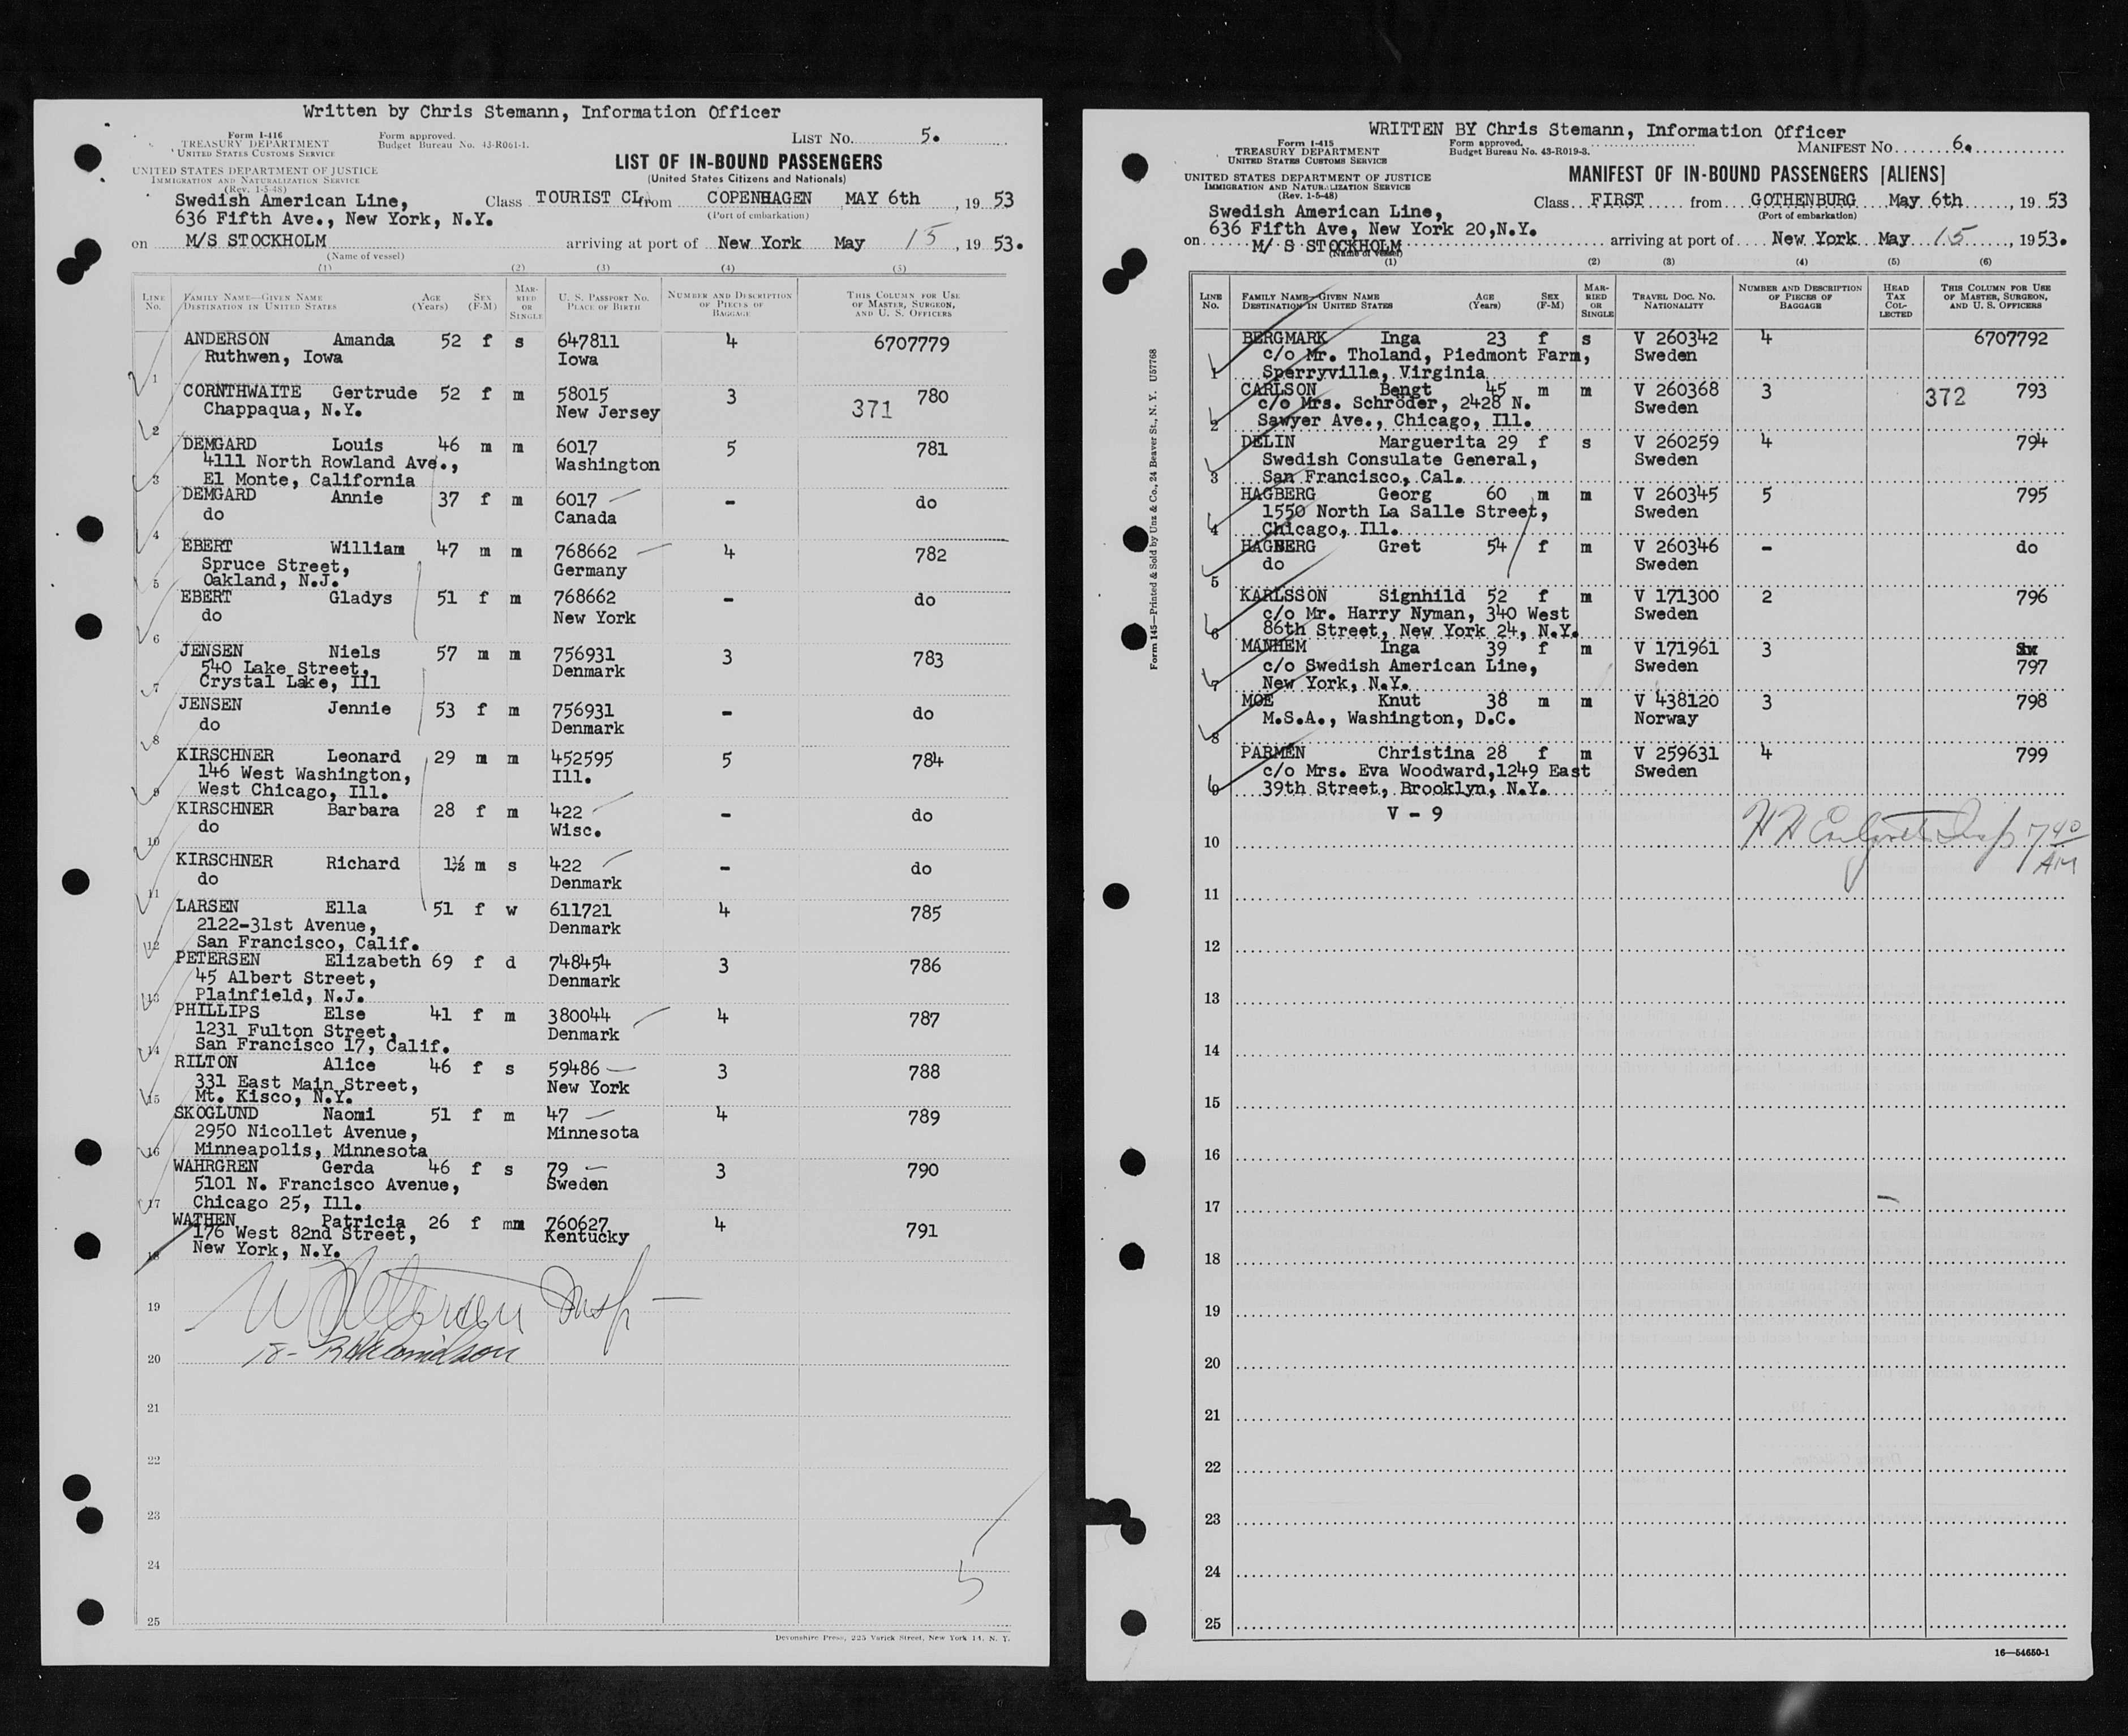 Written by Chris Stemann, Information Officer
Form I-416
TREASURY DEPARTMENT
UNITED STATES CUSTOMS SERVICE
Form approved.
Budget Bureau No. 43-R061-1.
LIST No. 5.
UNITED STATES DEPARTMENT OF JUSTICE
IMMIGRATION AND NATURALIZATION SERVICE
(Rev. 1-5-48)
LIST OF IN-BOUND PASSENGERS
(United States Citizens and Nationals)
Swedish American Line,
636 Fifth Ave., New York, N.Y.
Class TOURIST CL. from COPENHAGEN MAY 6th, 19 53
(Port of embarkation)
on M/S STOCKHOLM arriving at port of New York May 15, 19 53.
(Name of vessel)
(1) (2) (3) (4) (5)
LINE No. FAMILY NAME—GIVEN NAME DESTINATION IN UNITED STATES AGE (Years) SEX (F-M) MARRIED OR SINGLE U. S. PASSPORT No. PLACE OF BIRTH NUMBER AND DESCRIPTION OF PIECES OF BAGGAGE THIS COLUMN FOR USE OF MASTER, SURGEON, AND U. S. OFFICERS
ANDERSON Amanda 52 f s 647811 4 6707779
Ruthwen, Iowa Iowa
1
CORNTHWAITE Gertrude 52 f m 58015 3 780
Chappaqua, N.Y. New Jersey 371
2
DEMGARD Louis 46 m m 6017 5 781
4111 North Rowland Ave., Washington
3 El Monte, California
DEMGARD Annie 37 f m 6017 - do
do Canada
4
EBERT William 47 m m 768662 4 782
Spruce Street, Germany
5 Oakland, N.J.
EBERT Gladys 51 f m 768662 - do
do New York
6
JENSEN Niels 57 m m 756931 3 783
540 Lake Street, Denmark
7 Crystal Lake, Ill
JENSEN Jennie 53 f m 756931 - do
do Denmark
8
KIRSCHNER Leonard 29 m m 452595 5 784
146 West Washington, Ill.
9 West Chicago, Ill.
KIRSCHNER Barbara 28 f m 422 - do
do Wisc.
10
KIRSCHNER Richard 1½ m s 422 - do
do Denmark
11
LARSEN Ella 51 f w 611721 4 785
2122-31st Avenue, Denmark
12 San Francisco, Calif.
PETERSEN Elizabeth 69 f d 748454 3 786
45 Albert Street, Denmark
13 Plainfield, N.J.
PHILLIPS Else 41 f m 380044 4 787
1231 Fulton Street, Denmark
14 San Francisco 17, Calif.
RILTON Alice 46 f s 59486 3 788
331 East Main Street, New York
15 Mt. Kisco, N.Y.
SKOGLUND Naomi 51 f m 47 4 789
2950 Nicollet Avenue, Minnesota
16 Minneapolis, Minnesota
WAHRGREN Gerda 46 f s 79 3 790
5101 N. Francisco Avenue, Sweden
17 Chicago 25, Ill.
WATHEN Patricia 26 f m 760627 4 791
176 West 82nd Street, Kentucky
18 New York, N.Y.
Insp
19
18-
20
21
22
23
24
5
25
Devonshire Press, 225 Varick Street, New York 14, N. Y.
WRITTEN BY Chris Stemann, Information Officer
Form I-415
TREASURY DEPARTMENT
UNITED STATES CUSTOMS SERVICE
Form approved.
Budget Bureau No. 43-R019-3.
MANIFEST No. 6.
UNITED STATES DEPARTMENT OF JUSTICE
IMMIGRATION AND NATURALIZATION SERVICE
(Rev. 1-5-48)
MANIFEST OF IN-BOUND PASSENGERS [ALIENS]
Swedish American Line,
636 Fifth Ave, New York 20,N.Y.
Class FIRST from GOTHENBURG May 6th, 19 53
(Port of embarkation)
on M/ S STOCKHOLM arriving at port of New York May 15, 1953.
(Name of vessel)
(1) (2) (3) (4) (5) (6)
LINE No. FAMILY NAME—GIVEN NAME DESTINATION IN UNITED STATES AGE (Years) SEX (F-M) MARRIED OR SINGLE TRAVEL DOC. No. NATIONALITY NUMBER AND DESCRIPTION OF PIECES OF BAGGAGE HEAD TAX COLLECTED THIS COLUMN FOR USE OF MASTER, SURGEON, AND U. S. OFFICERS
BERGMARK Inga 23 f s V 260342 4 6707792
c/o Mr. Tholand, Piedmont Farm, Sweden
1 Sperryville, Virginia
CARLSON Bengt 45 m m V 260368 3 372 793
c/o Mrs. Schröder, 2428 N. Sweden
2 Sawyer Ave., Chicago, Ill.
DELIN Marguerita 29 f s V 260259 4 794
Swedish Consulate General, Sweden
3 San Francisco, Cal.
HAGBERG Georg 60 m m V 260345 5 795
1550 North La Salle Street, Sweden
4 Chicago, Ill.
HAGBERG Gret 54 f m V 260346 - do
do Sweden
5
KARLSSON Signhild 52 f m V 171300 2 796
c/o Mr. Harry Nyman, 340 West Sweden
6 86th Street, New York 24, N.Y.
MANHEM Inga 39 f m V 171961 3
c/o Swedish American Line, Sweden 797
7 New York, N.Y.
MOE Knut 38 m m V 438120 3 798
M.S.A., Washington, D.C. Norway
8
PARMEN Christina 28 f m V 259631 4 799
c/o Mrs. Eva Woodward,1249 East Sweden
9 39th Street, Brooklyn, N.Y.
V - 9
Insp 7 40 AM
10
11
12
13
14
15
16
17
18
19
20
21
22
23
24
25
16—54650-1
Form 145—Printed & Sold by Unz & Co., 24 Beaver St., N. Y. U57768